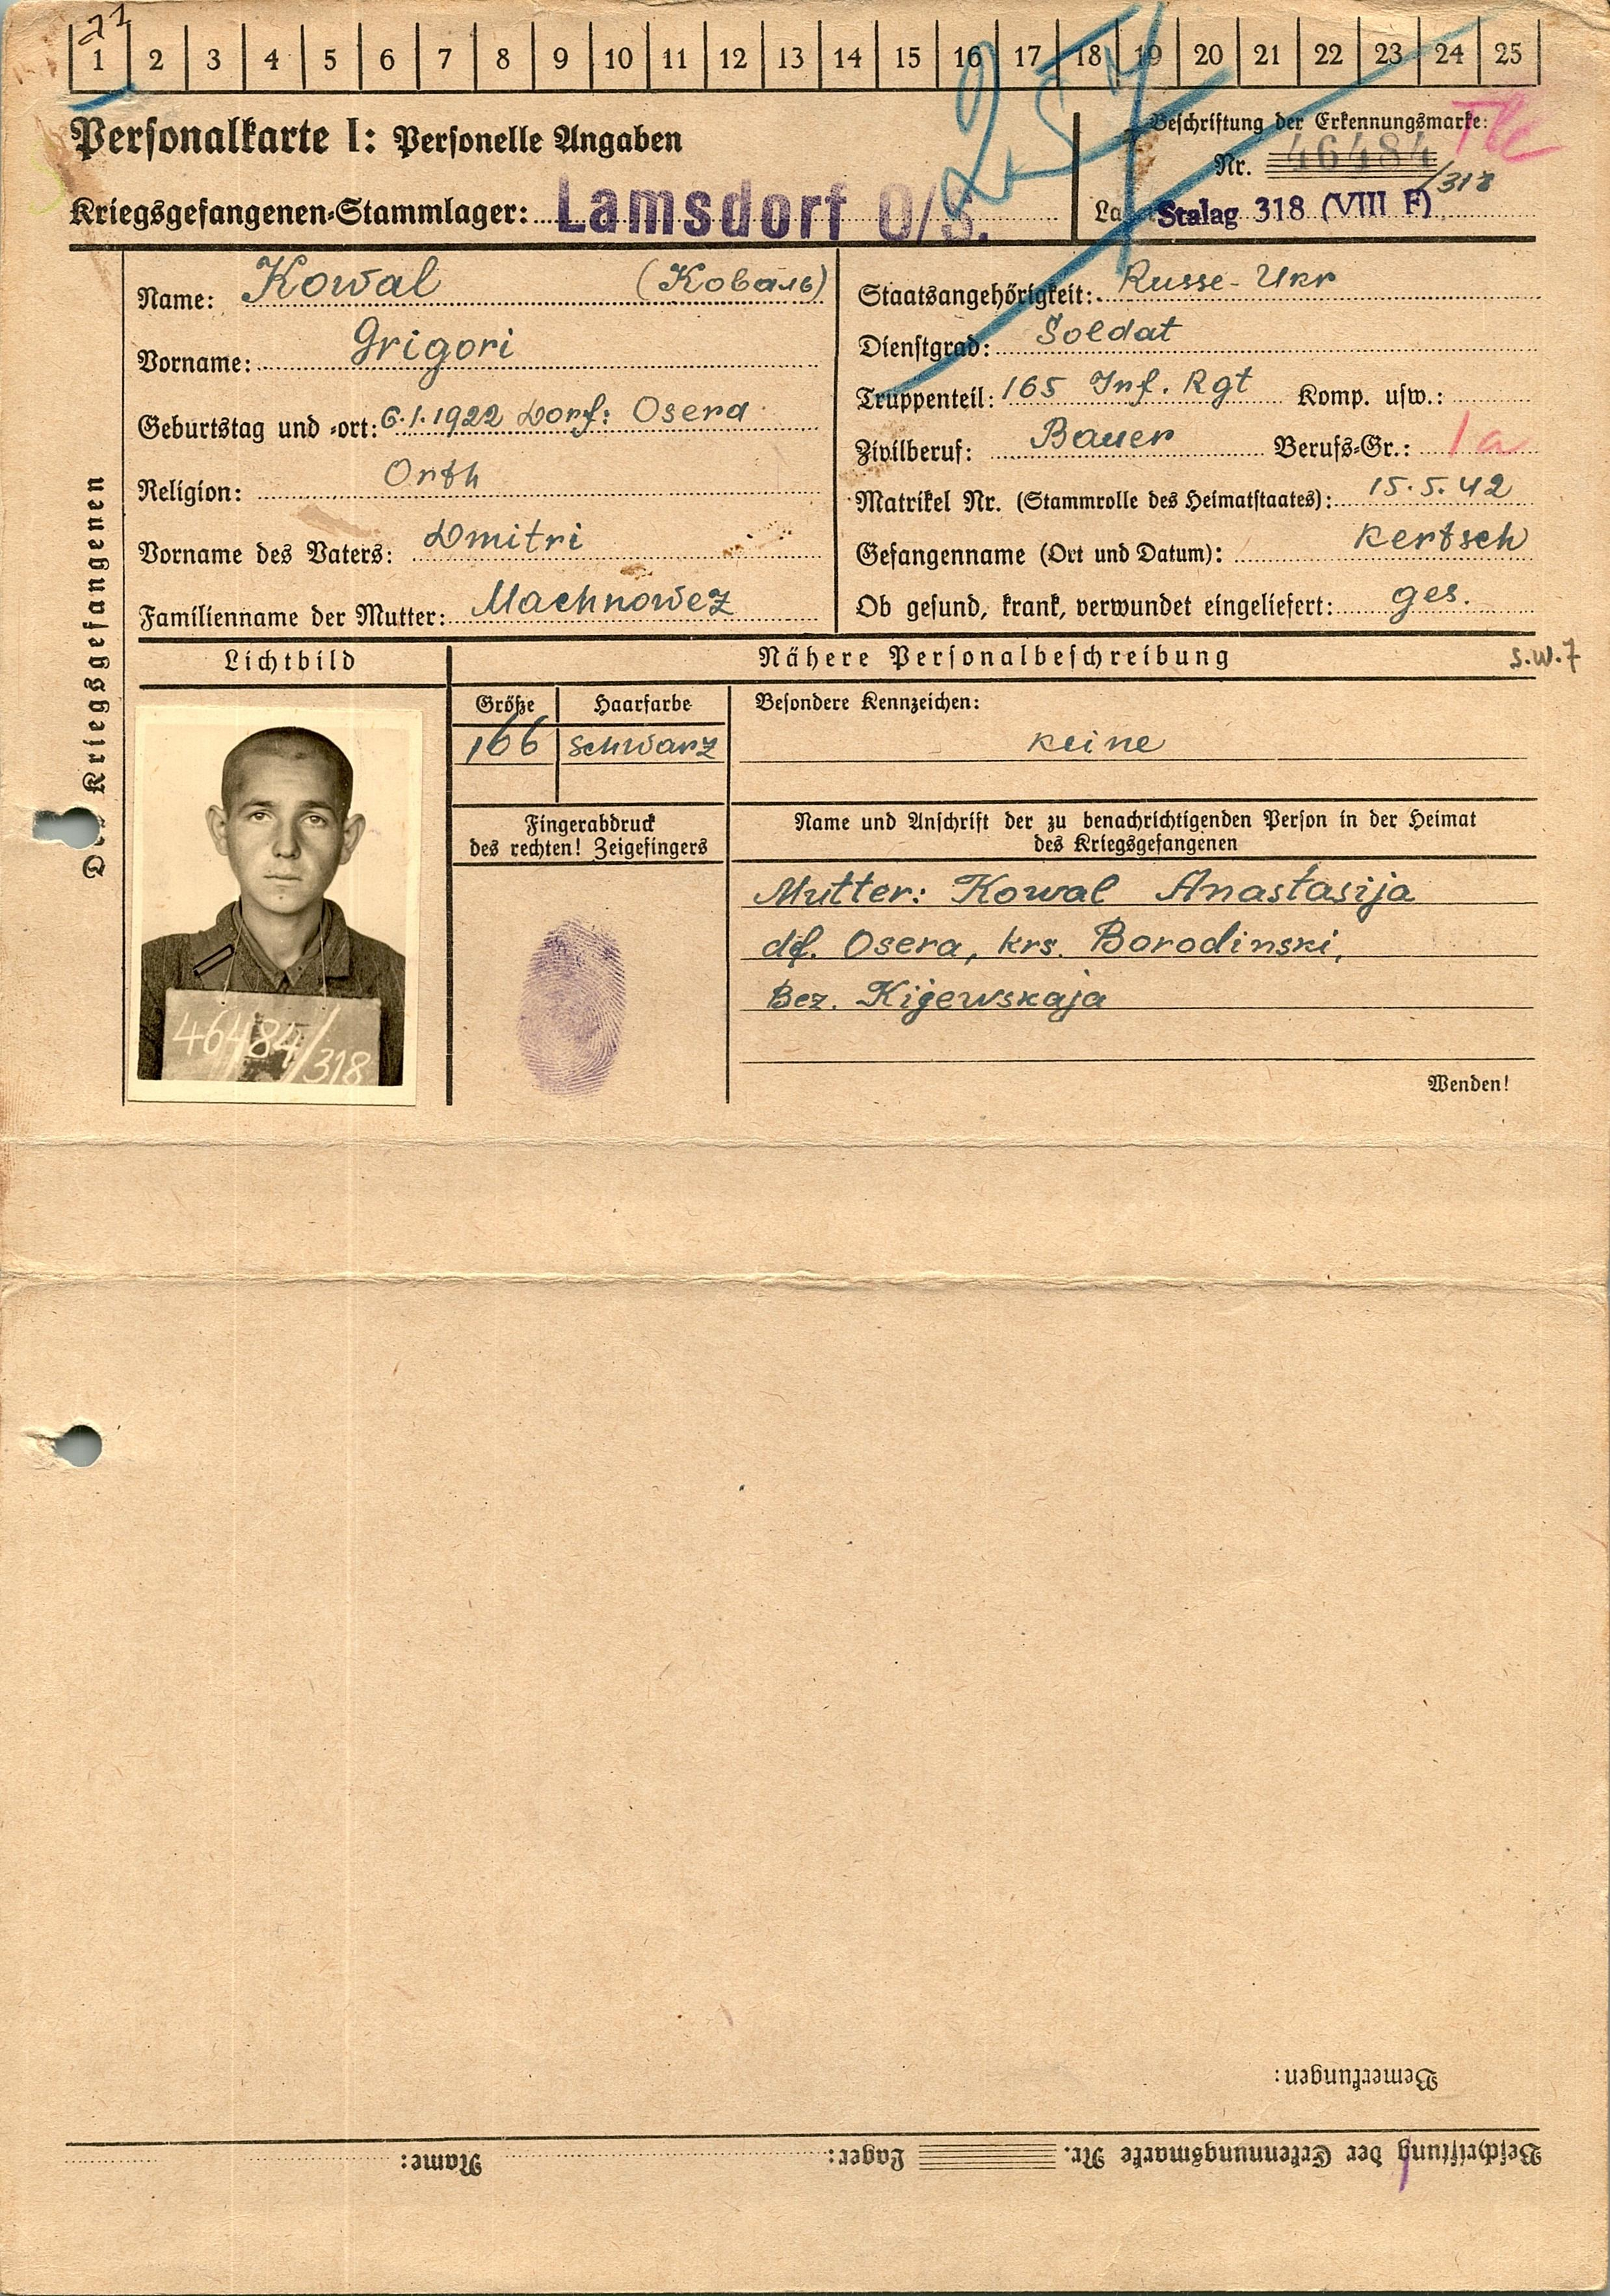 1 2 3 4 5 6 7 8 9 10 11 12 13 14 15 16 17 18 19 20 21 22 23 24 25
Personalkarte I: Personelle Angaben
Beschriftung der Erkennungsmarke:
Nr. 46484/318
Kriegsgefangenen-Stammlager: Lamsdorf O/S.
Stalag 318 (VIII F)
Kriegsgefangenen
Name: Kowal (Коваль)
Vorname: Grigori
Geburtstag und -ort: 6.1.1922 Dorf: Osera
Religion: Orth
Vorname des Vaters: Dmitri
Familienname der Mutter: Machnowez
Staatsangehörigkeit: Russe-Ukr
Dienstgrad: Soldat
Truppenteil: 165 Inf. Rgt Komp. usw.:
Zivilberuf: Bauer Berufs-Gr.: 1a
Matrikel Nr. (Stammrolle des Heimatstaates): 15.5.42
Gefangenname (Ort und Datum): Kertsch
Ob gesund, krank, verwundet eingeliefert: ges.
Lichtbild
Nähere Personalbeschreibung
s.w.7
Größe Haarfarbe
166 schwarz
Besondere Kennzeichen:
keine
Fingerabdruck
des rechten! Zeigefingers
Name und Anschrift der zu benachrichtigenden Person in der Heimat
des Kriegsgefangenen
Mutter: Kowal Anastasija
df. Osera, krs. Borodinski,
Bez. Kijewskaja
46484/318
Wenden!
Bemerkungen:
Beschriftung der Erkennungsmarke Nr. Lager: Name: